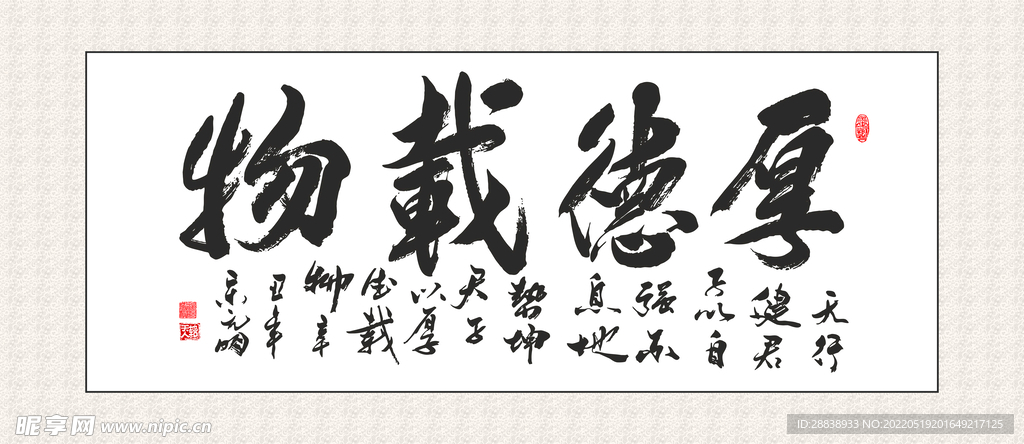 厚德載物
天行
健君
子以自
强不
息地
勢坤
君子
以厚
德載
物辛
丑年
昵享网 www.nipic.cn
ID:28838933 NO:20220519201649217125